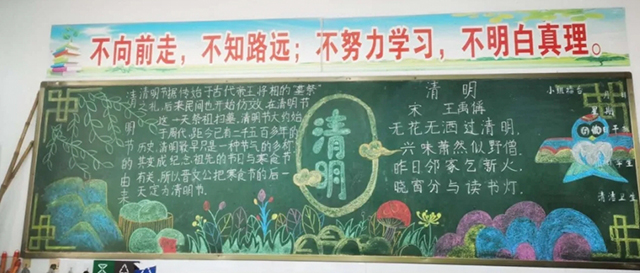 不向前走，不知路远；不努力学习，不明白真理。
清明节的由来
清明节据传始于古代帝王将相的"墓祭"
之礼，后来民间也开始仿效，在清明节
这一天祭祖扫墓。清明节大约始
于周代，距今已有二千五百多年的
历史，清明最早只是一种节气的名称
其变成纪念祖先的节日与寒食节
有关。所以晋文公把寒食节的后一
天定为清明节。
清明
清明
宋 王禹偁
无花无酒过清明，
兴味萧然似野僧。
昨日邻家乞新火，
晓窗分与读书灯。
小组
清洁卫生